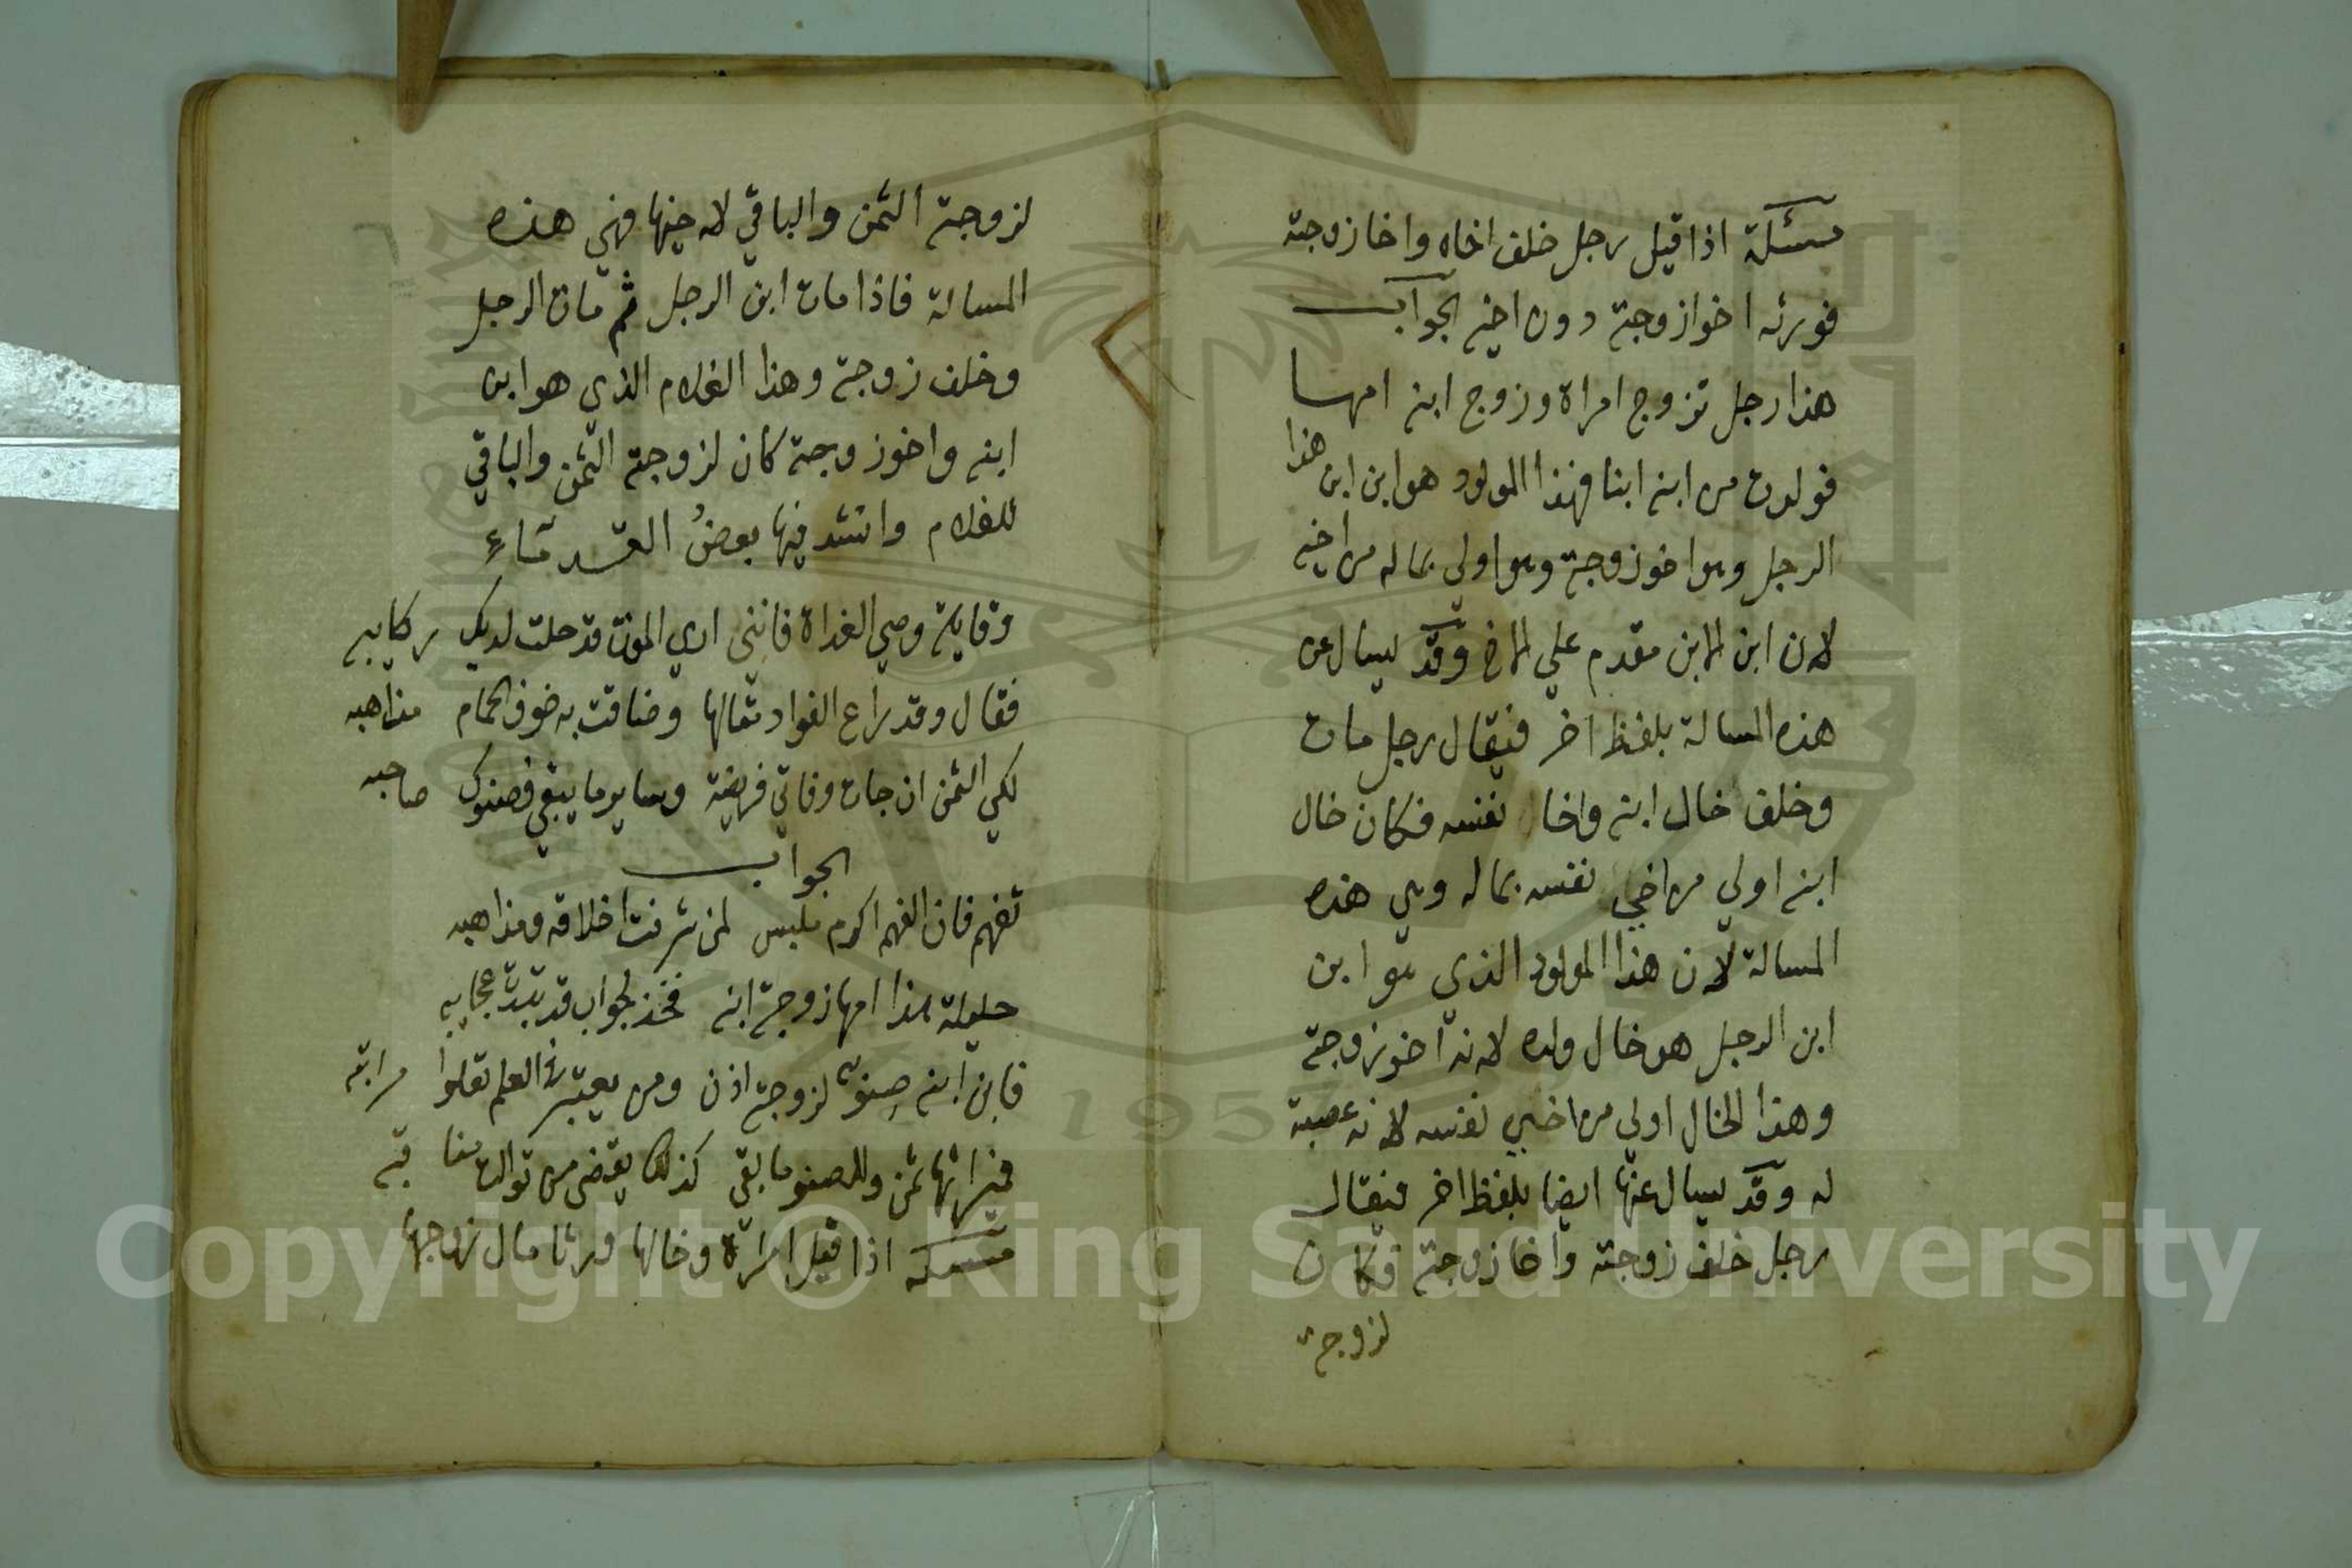 مسئلة اذا قيل رجل خلف اخاه واخا زوجته
فورثه اخوا زوجته دون اخيه الجواب
هذا رجل تزوج امراة وزوج ابنه امها
فولدت من ابنه ابنا فهذا المولود هو ابن ابن هذا
الرجل وهوا خوزوجته وهوا ولي بماله من اخيه
لان ابن الابن مقدم علي الاخ وقد يسال عن
هذه المسالة بلفظ اخر فيقال رجل مات
وخلف خال ابنه واخا نفسه فكان خال
ابنه اولي من اخي نفسه بماله وهي هذه
المسالة لان هذا المولود الذي هو ابن
ابن الرجل هو خال ولده لانه اخو زوجته
وهذا الخال اولي من اخي نفسه لانه عصبة
له وقد يسال عنها ايضا بلفظ اخر فيقال
رجل خلف زوجته واخا زوجته فكان
لزوجته
لزوجته الثمن والباقي لاخيها فهي هذه
المسالة فاذا مات ابن الرجل ثم مات الرجل
وخلف زوجته وهذا الغلام الذي هو ابن
ابنه واخوزوجته كان لزوجته الثمن والباقي
للغلام وانشد فيها بعضُ القدماء
وقايلة وصي الغداة فانني اري الموت قد حلت لديك ركايبه
فقال وقد راع الفواد مقالها وضاقت به خوف الحمام مذاهبه
لكي الثمن ان جات وفاتي فريضة وساير ما يبقي فصنوك صاحبه
الجواب
تفهم فان الفهم اكرم ملبس لمن شرفت اخلاقه ومذاهبه
حليلة هذا امها زوجة ابنه فخذ لجواب قد تبدت عجايبه
فابن ابنه صنو لزوجته اذن ومن يعتبر في العلم تعلوا مراتبه
فميراثها ثمن وللصنو ما بقي كذلك يقضي من توالت مناقبه
مسئلة اذا قيل امراة وخالها ورثا مال زوجها
1957
Copyright © King Saud University